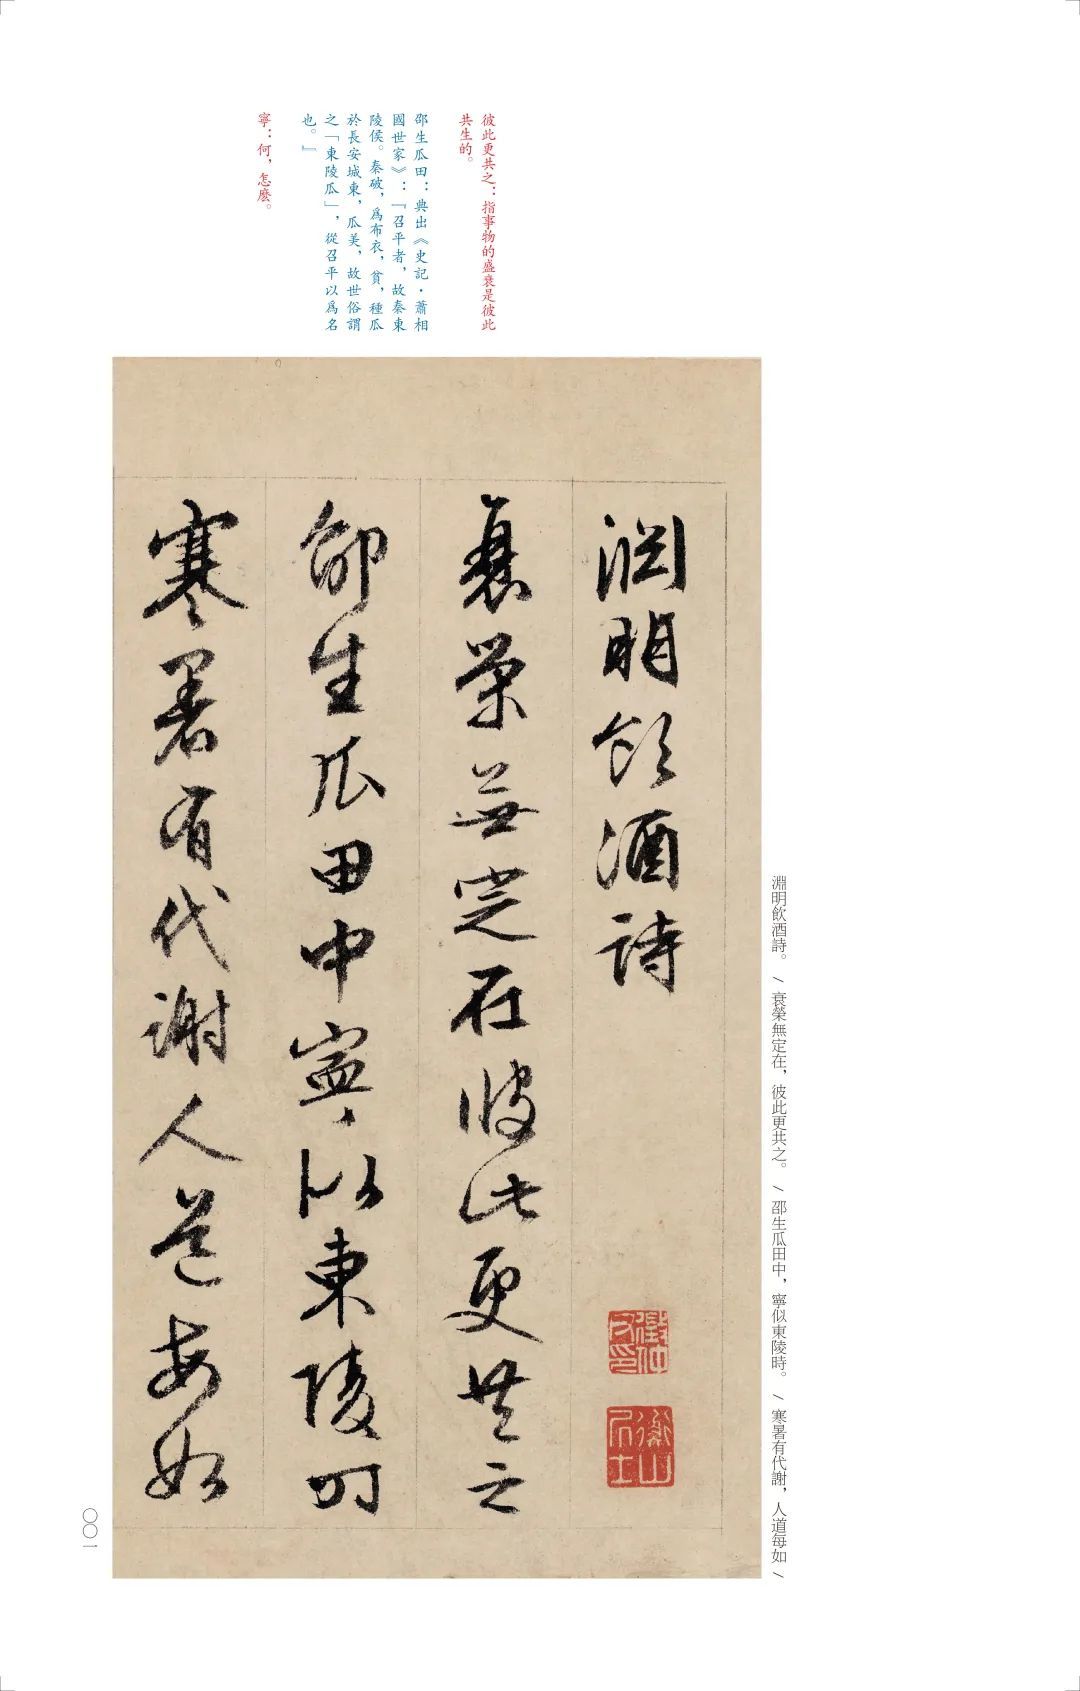 彼此更共之：指事物的盛衰是彼此
共生的。
邵生瓜田：典出《史記·蕭相
國世家》：『召平者，故秦東
陵侯。秦破，爲布衣，貧，種瓜
於長安城東，瓜美，故世俗謂
之「東陵瓜」，從召平以爲名
也。』
寧：何，怎麽。
淵明飲酒詩
衰榮無定在彼此更共之
邵生瓜田中寧似東陵時
寒暑有代謝人道每如
徵仲父印
衡山居士
淵明飲酒詩。 / 衰榮無定在，彼此更共之。 / 邵生瓜田中，寧似東陵時。 / 寒暑有代謝，人道每如 /
〇〇一